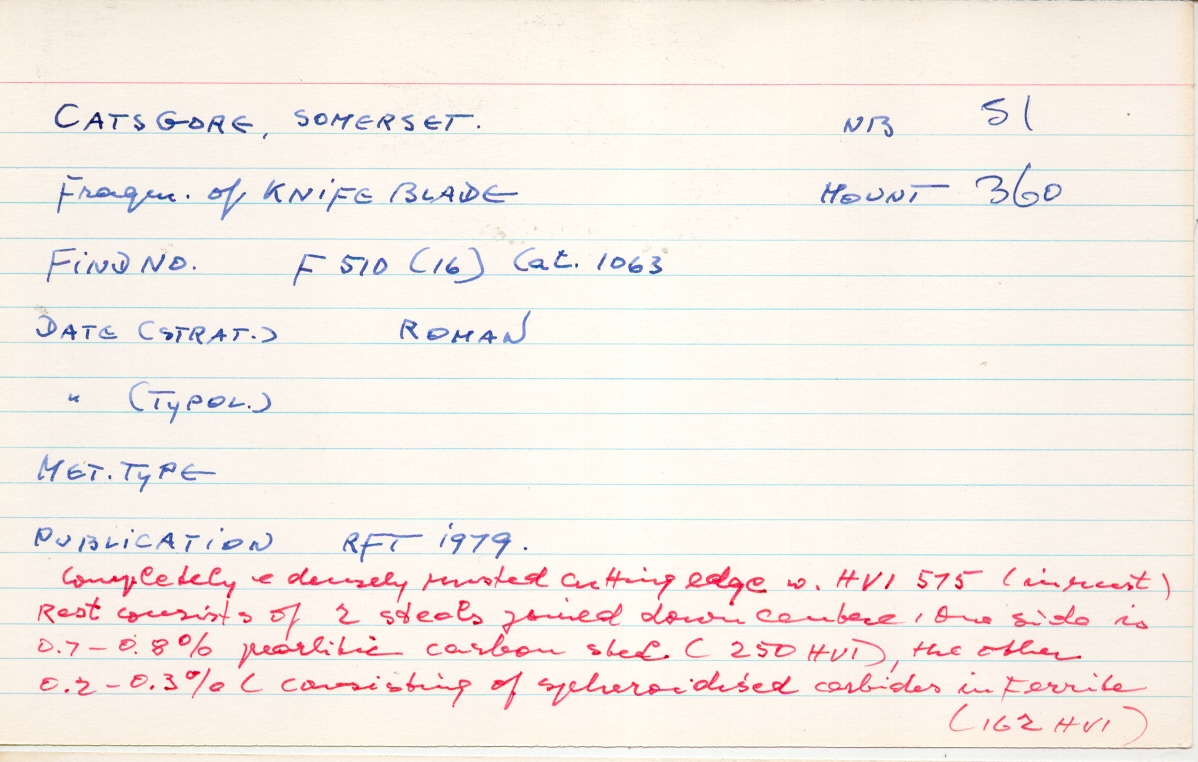 CATSGORE, SOMERSET. NB 51
Fragm. of KNIFE BLADE MOUNT 360
FIND NO. F 510 (16) Cat. 1063
DATE (STRAT.) ROMAN
" (TYPOL.)
MET. TYPE
PUBLICATION RFT 1979.
Completely & densely rusted cutting edge w. HV1 575 (in rust)
Rest consists of 2 steels joined down centre; One side is
0.7-0.8% pearlitic carbon steel (250 HV1), the other
0.2-0.3% C consisting of spheroidised carbides in Ferrite
(162 HV1)